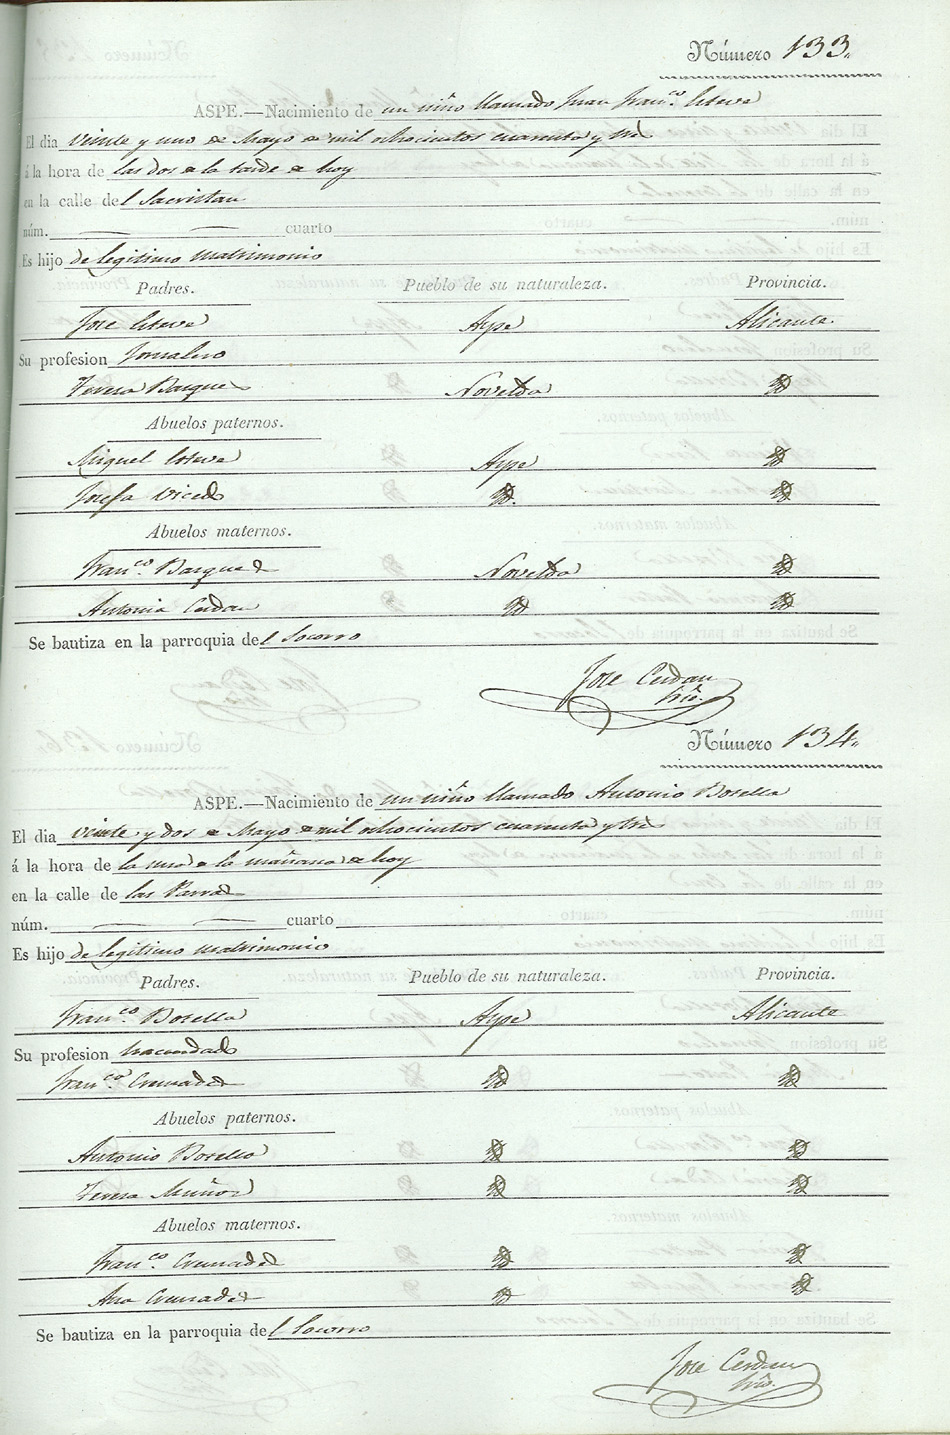 Número 133.
ASPE.—Nacimiento de un niño llamado Juan Fran.co Esteve
El dia veinte y uno de Mayo de mil ochocientos cuarenta y tres
á la hora de las dos de la tarde de hoy
en la calle del Sacristan
núm. cuarto
Es hijo de legitimo matrimonio
Padres. Pueblo de su naturaleza. Provincia.
Jose Esteve Aspe Alicante.
Su profesion Jornalero
Teresa Novelda Id
Abuelos paternos.
Miguel Esteve Aspe Id
Josefa Vicedo Id. Id
Abuelos maternos.
Fran.co Novelda Id
Antonia Cerdan Id Id
Se bautiza en la parroquia del Socorro
Jose Cerdan
Srio.
Número 134.
ASPE.—Nacimiento de un niño llamado Antonio Botella
El dia veinte y dos de Mayo de mil ochocientos cuarenta y tres
á la hora de la una de la mañana de hoy
en la calle de las Parras
núm. cuarto
Es hijo de legitimo matrimonio
Padres. Pueblo de su naturaleza. Provincia.
Fran.co Botella Aspe Alicante
Su profesion hacendado
Fran.ca Cremades Id Id
Abuelos paternos.
Antonio Botella Id Id
Teresa Muñoz Id Id
Abuelos maternos.
Fran.co Cremades Id Id
Ana Cremades Id Id
Se bautiza en la parroquia del Socorro
Jose Cerdan
Srio.